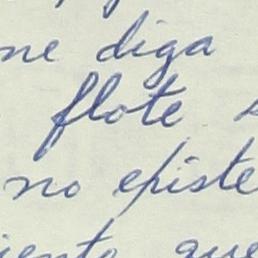 me diga
flote s
no existe
iento que